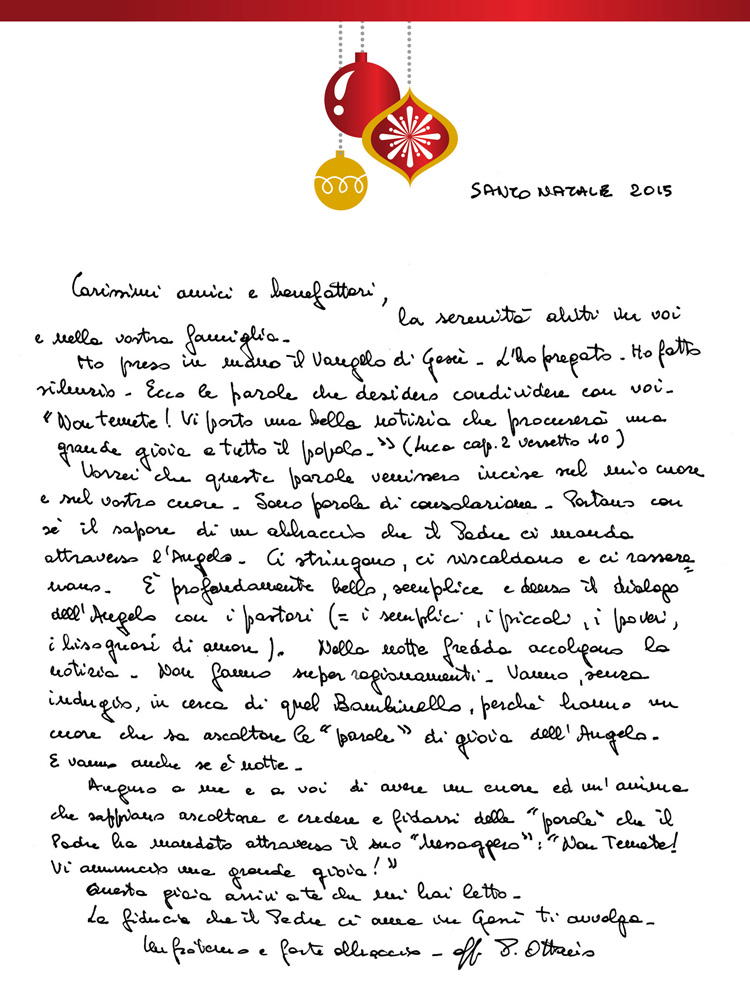 SANTO NATALE 2015
Carissimi amici e benefattori,
la serenità abiti in voi
e nella vostra famiglia.
Ho preso in mano il Vangelo di Gesù. L'ho pregato. Ho fatto
silenzio. Ecco le parole che desidero condividere con voi.
"Non temete! Vi porto una bella notizia che procurerà una
grande gioia a tutto il popolo." (Luca cap. 2 versetto 10)
Vorrei che queste parole venissero incise sul mio cuore
e sul vostro cuore. Sono parole di consolazione. Portano con
sè il sapore di un abbraccio che il Padre ci manda
attraverso l'Angelo. Ci stringono, ci riscaldano e ci rassere=
nano. È profondamente bello, semplice e denso il dialogo
dell'Angelo con i pastori (= i semplici, i piccoli, i poveri,
i bisognosi di amore). Nella notte fredda accolgono la
notizia. Non fanno super ragionamenti. Vanno, senza
indugio, in cerca di quel Bambinello, perchè hanno un
cuore che sa ascoltare le "parole" di gioia dell'Angelo.
E vanno anche se è notte.
Auguro a me e a voi di avere un cuore ed un'anima
che sappiano ascoltare e credere e fidarsi delle "parole" che il
Padre ha mandato attraverso il suo "Messaggero": "Non Temete!
Vi annuncio una grande gioia!"
Questa gioia arrivi a te che mi hai letto.
La fiducia che il Padre ci ama in Gesù ti avvolga.
Un fraterno e forte abbraccio - aff. P. Ottavio